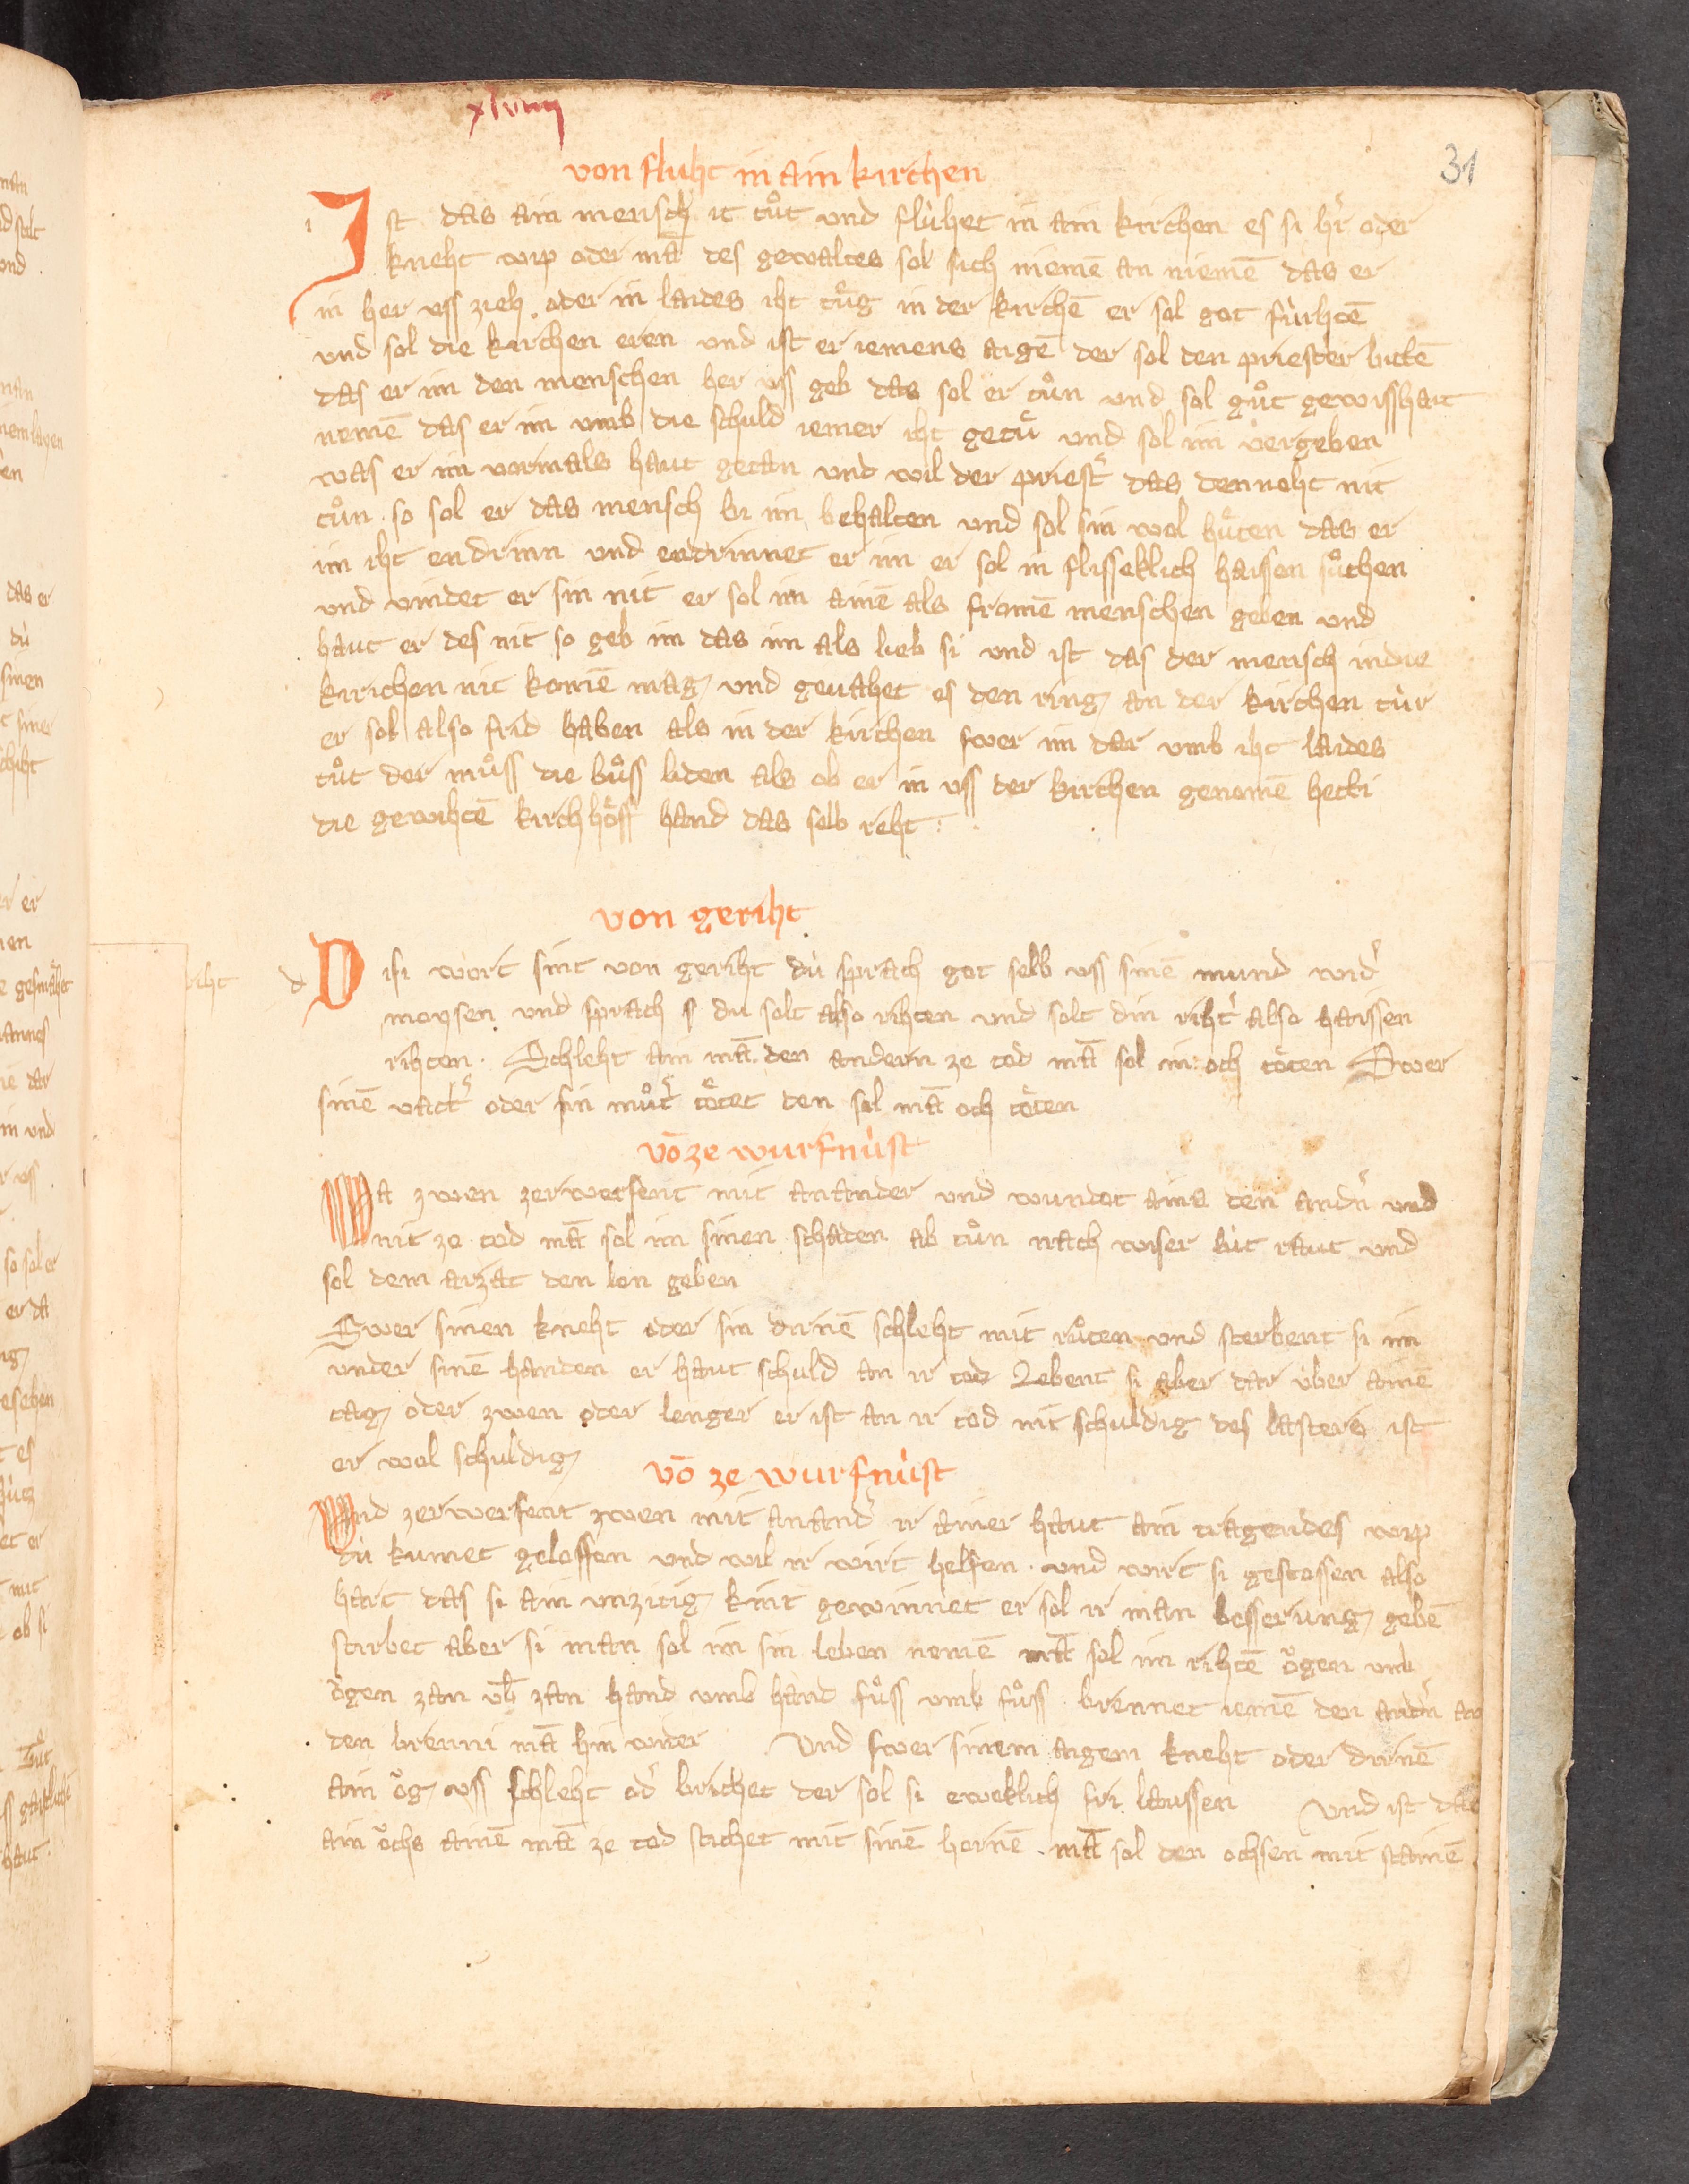 xlviiij
31
von fluht in ain kirchen
Ist das ain mensch it tůt und flúhet in ain kirchen es si hr̓ oder
kneht wip oder mā des gewaltes sol sich niemē an niemē das er
in her uss zieh oder in laides iht tuͤg in der kirchē er sol got fúrhtē
und sol die kirchen eren und ist er iemens aigē der sol den priester bittē
das er im den menschen her uss geb das sol er tůn und sol gůt gewisshait
nemē das er im umb die schuld iemer iht getuͤ und sol im vergeben
was er im vormals haut getan und wil der priest̓ das denneht nit
tůn . so sol er das mensch bi im behalten und sol sin wol huͤten das er
im iht endrinn und endrinnet er im er sol in flisseklich haissen sůchen
und vindet er sin nit er sol im ainē als fromē menschen geben und
haut er des nit so geb im das im als lieb si und ist das der mensch in die
kirichen nit komē mag und gevahet es den ring an der kirchen túr
er sol also frid haben als in der kirchen swer im dar umb iht laides
tůt der můss die bůss liden als ob er in uss der kirchen genomē hetti
die gewihtē kirchhoͤff hand das selb reht :
von geriht
Disi wort sint von geriht dú sprach got selb uss sinē mund wid̓
moysen und sprach du solt also rihten und solt din riht̓ also haissen
rihten . Schleht ain mā den andern ze tod mā sol in och toͤten Swer
sinē vatt̓ oder sin můt̓ toͤtet den sol mā och toͤten
vō ze wurfnúst
Wa zwen zerwerfent mit anander und wundet ains den andn̓ und
nit ze tod mā sol im sinen schaden ab tůn nach wiser lút raut und
sol dem arzat den lon geben
Swer sinen kneht oder sin dirnē schleht mit růten und sterbent si im
under sinē handen er haut schuld an ir tod Lebent si aber dar über ainē
tag oder zwen oder lenger er ist an ir tod nit schuldig des lasters ist
er wol schuldig
vō ze wurfnúst
Und zerwerfent zwen mit anand̓ ir ainer haut ain tragendes wip
dú kumet geloffen und wil ir wirt helfen . und wirt si gestossen also
hart das si ain unzitig kint gewinnet er sol ir man besserung gebē
stirbet aber si man sol im sin leben nemē mā sol im rihtē oͤgen umb
oͤgen zan ūb zan hand umb hand fůss umb fůss . brennet iemē den andn̓ an
den brenni mā hin wider Und swer sinem aigem kneht oder dirnē
ain oͤg uss schleht od̓ brichet der sol si eweklich fri laussen Und ist das
ain ochs ainē mā ze tod stichet mit sinē hornē . mā sol den ochsen mit stainē